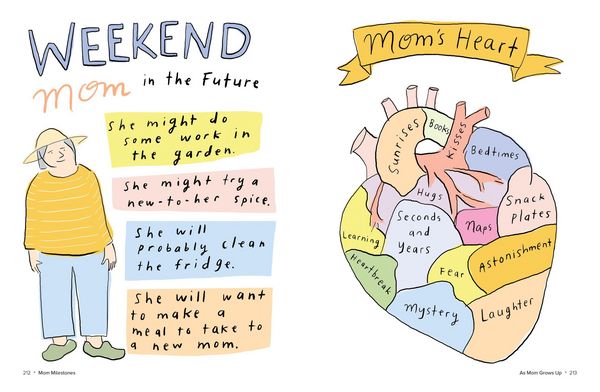 WEEKEND
mom in the Future
She might do
some work in
the garden.
She might try a
new-to-her spice.
She will
probably clean
the fridge.
She will want
to make a
meal to take to
a new mom.
212 • Mom Milestones
Mom's Heart
Sunrises
Books
Kisses
Bedtimes
Hugs
Snack
plates
Seconds
and
Years
Naps
Learning
Astonishment
Fear
Heartbreak
Mystery
Laughter
As Mom Grows Up • 213